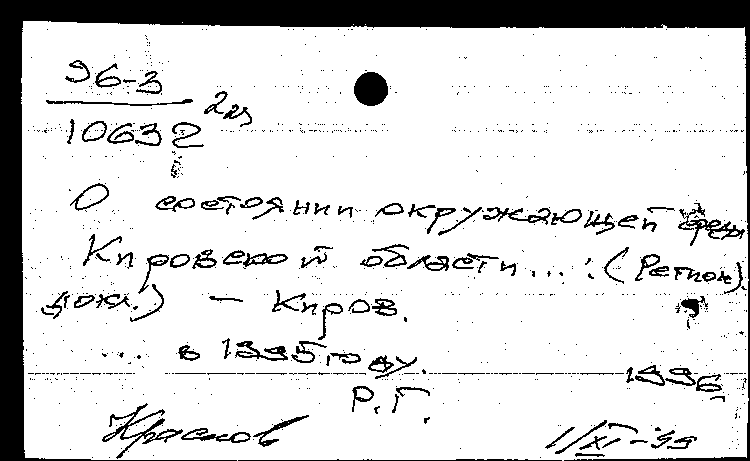 96-3
10632 2 кз
О состоянии окружающей среды
Кировской области... : (Регион.
докл.) — Киров.
... в 1995 году. 1996.
Р.Г.
Краснов 1/XI-99